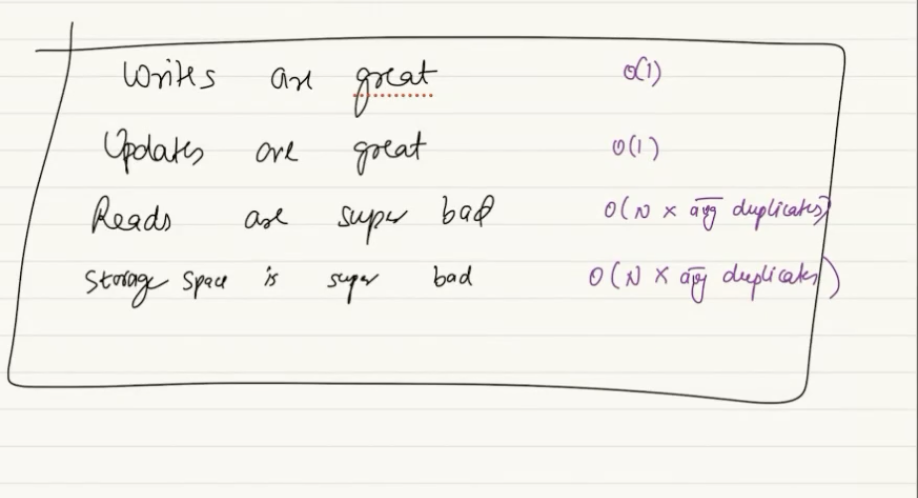 Writes are great O(1)
Updates are great O(1)
Reads are super bad O(N x avg duplicates)
Storage space is super bad O(N x avg duplicates)